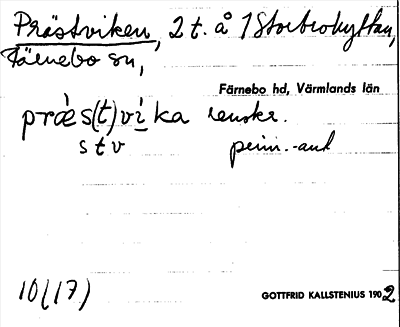 Prästviken, 2 t. å 1 Storbrohyttan,
Färnebo sn,
Färnebo hd, Värmlands län
præ̀s(t)vìka
s t v
10(17)
GOTTFRID KALLSTENIUS 1902